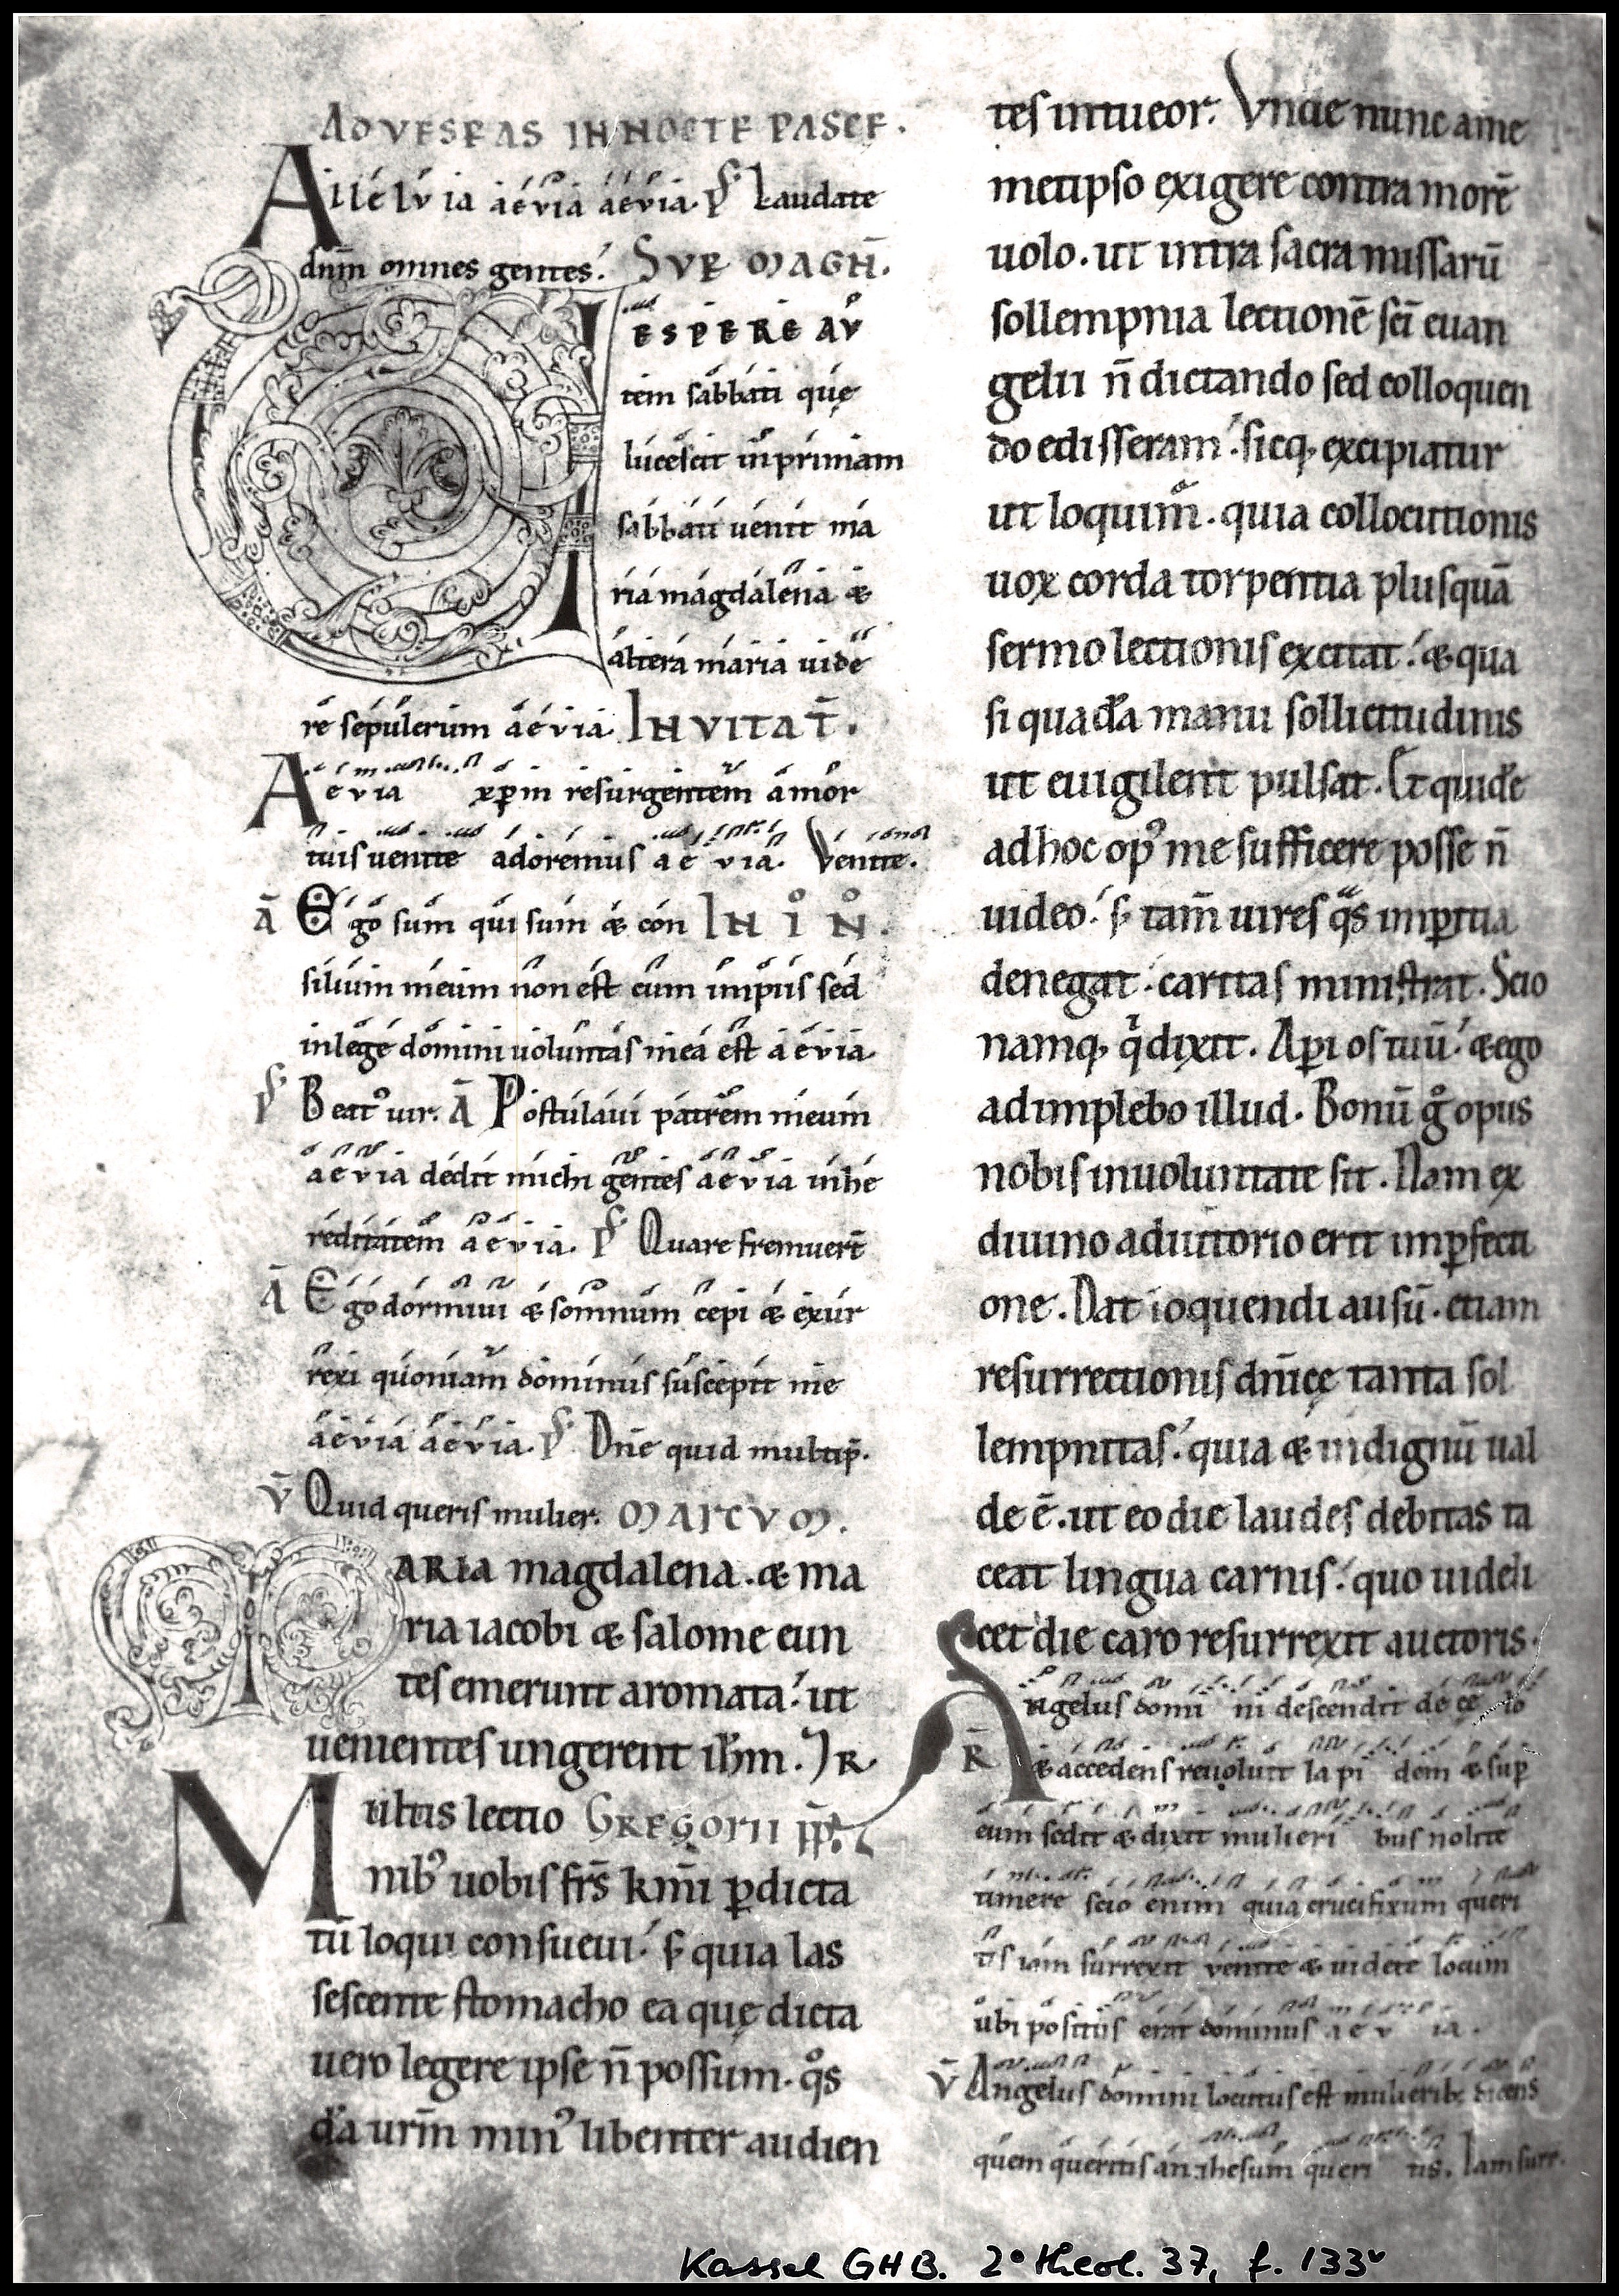 AD VESPERAS IN NOCTE PASCE.
Allelvia aevia aevia. ps Laudate
dnm̄ omnes gentes. SVP MAGN̄.
VESPERE AV
tem sabbati quę
lucescit in primam
sabbati uenit ma
ria magdalena &
altera maria uide
re sepulcrum aevia. INVITAT̄.
Aevia xp̄m resurgentem a mor
tuis uenite adoremus aevia. Venite.
ā Ego sum qui sum & con IN I N̊.
silium meum non est cum impiis sed
in lege domini uoluntas mea est aevia.
ps Beatꝰ uir. ā Postulaui patrem meum
aevia dedit michi gentes aevia in he
reditatem aevia. ps Quare fremuer̄t
ā Ego dormiui & somnum cepi & exur
rexi quoniam dominus suscepit me
aevia aevia. ps Dn̄e quid multip̄.
v̄ Quid queris mulier. MARCVM.
MARIA magdalena. & ma
ria iacobi & salome eun
tes emerunt aromata. ut
uenientes ungerent ihm̄. ) R.
Multis lectio GREGORII pp̄.
nibꝰ uobis frs̄ km̄i ꝑ dicta
tū loqui consueui. s; quia las
sescente stomacho ea quę dicta
uero legere ipse n̄ possum. qͦs
dā urm̄ minꝰ libenter audien
tes intueor. Vnde nunc a me
metipso exigere contra morē
uolo. ut intra sacra missarū
sollempnia lectionē sc̄i euan
gelii n̄ dictando sed colloquen
do edisseram. sicq; excipiatur
ut loquim̄. quia collocutionis
uox corda torpentia plus quā
sermo lectionis excitat. & qua
si quadā manu sollicitudinis
ut euigilent pulsat. Et quidē
ad hoc opꝰ me sufficere posse n̄
uideo. s; tam̄ uires qᵃs imꝑitia
denegat. caritas ministrat. Scio
namq; qⁱ dixit. Aꝑi os tuū. & ego
adimplebo illud. Bonū gͦ opus
nobis in uoluntate sit. Nam ex
diuino adiutorio erit in ꝑfecti
one. Dat loquendi ausū. etiam
resurrectionis dn̄icę tanta sol
lempnitas. quia & indignū ual
de ē. ut eo die laudes debitas ta
ceat lingua carnis. quo uideli
cet die caro resurrexit auctoris.
Angelus domi ni descendit de cę lo
R̄ & accedens reuoluit lapi dem & suꝑ
eum sedit & dixit mulieri bus nolite
timere scio enim quia crucifixum queri
tis iam surrexit uenite & uidete locum
ubi positus erat dominus aev ia.
v̄ Angelus domini locutus est mulierib; dicens
quem queritis an ihesum queri tis. Iam surr.
Kassel GHB. 2° theol. 37, f. 133ᵛ